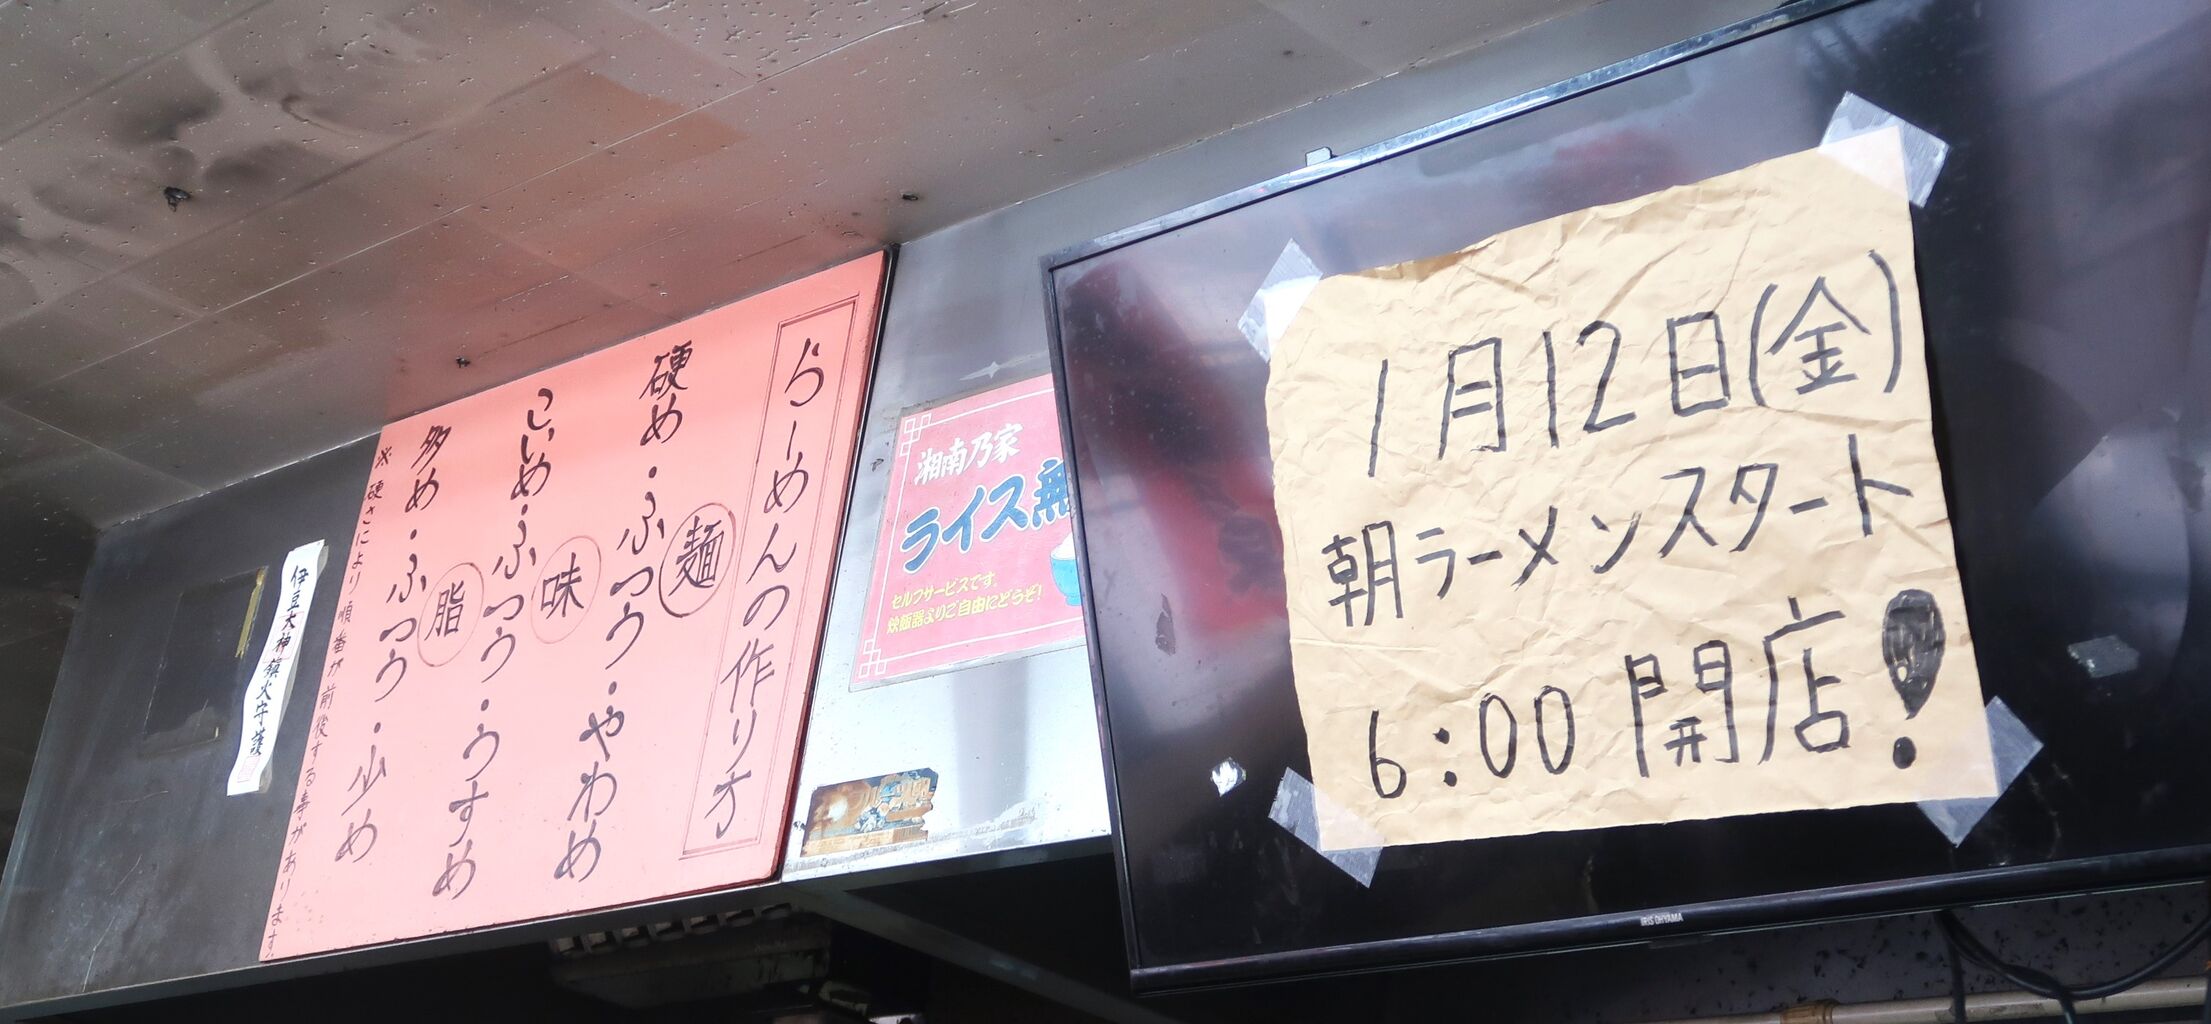 1月12日(金)
朝ラーメンスタート
6:00 開店!
IRIS OHYAMA
湘南乃家
ライス無
セルフサービスです。
炊飯器よりご自由にどうぞ!
らーめんの作り方
麺
硬め・ふつう・やわめ
味
こいめ・ふつう・うすめ
脂
多め・ふつう・少め
※硬さにより順番が前後する事があります。
伊豆大神鎮火守護